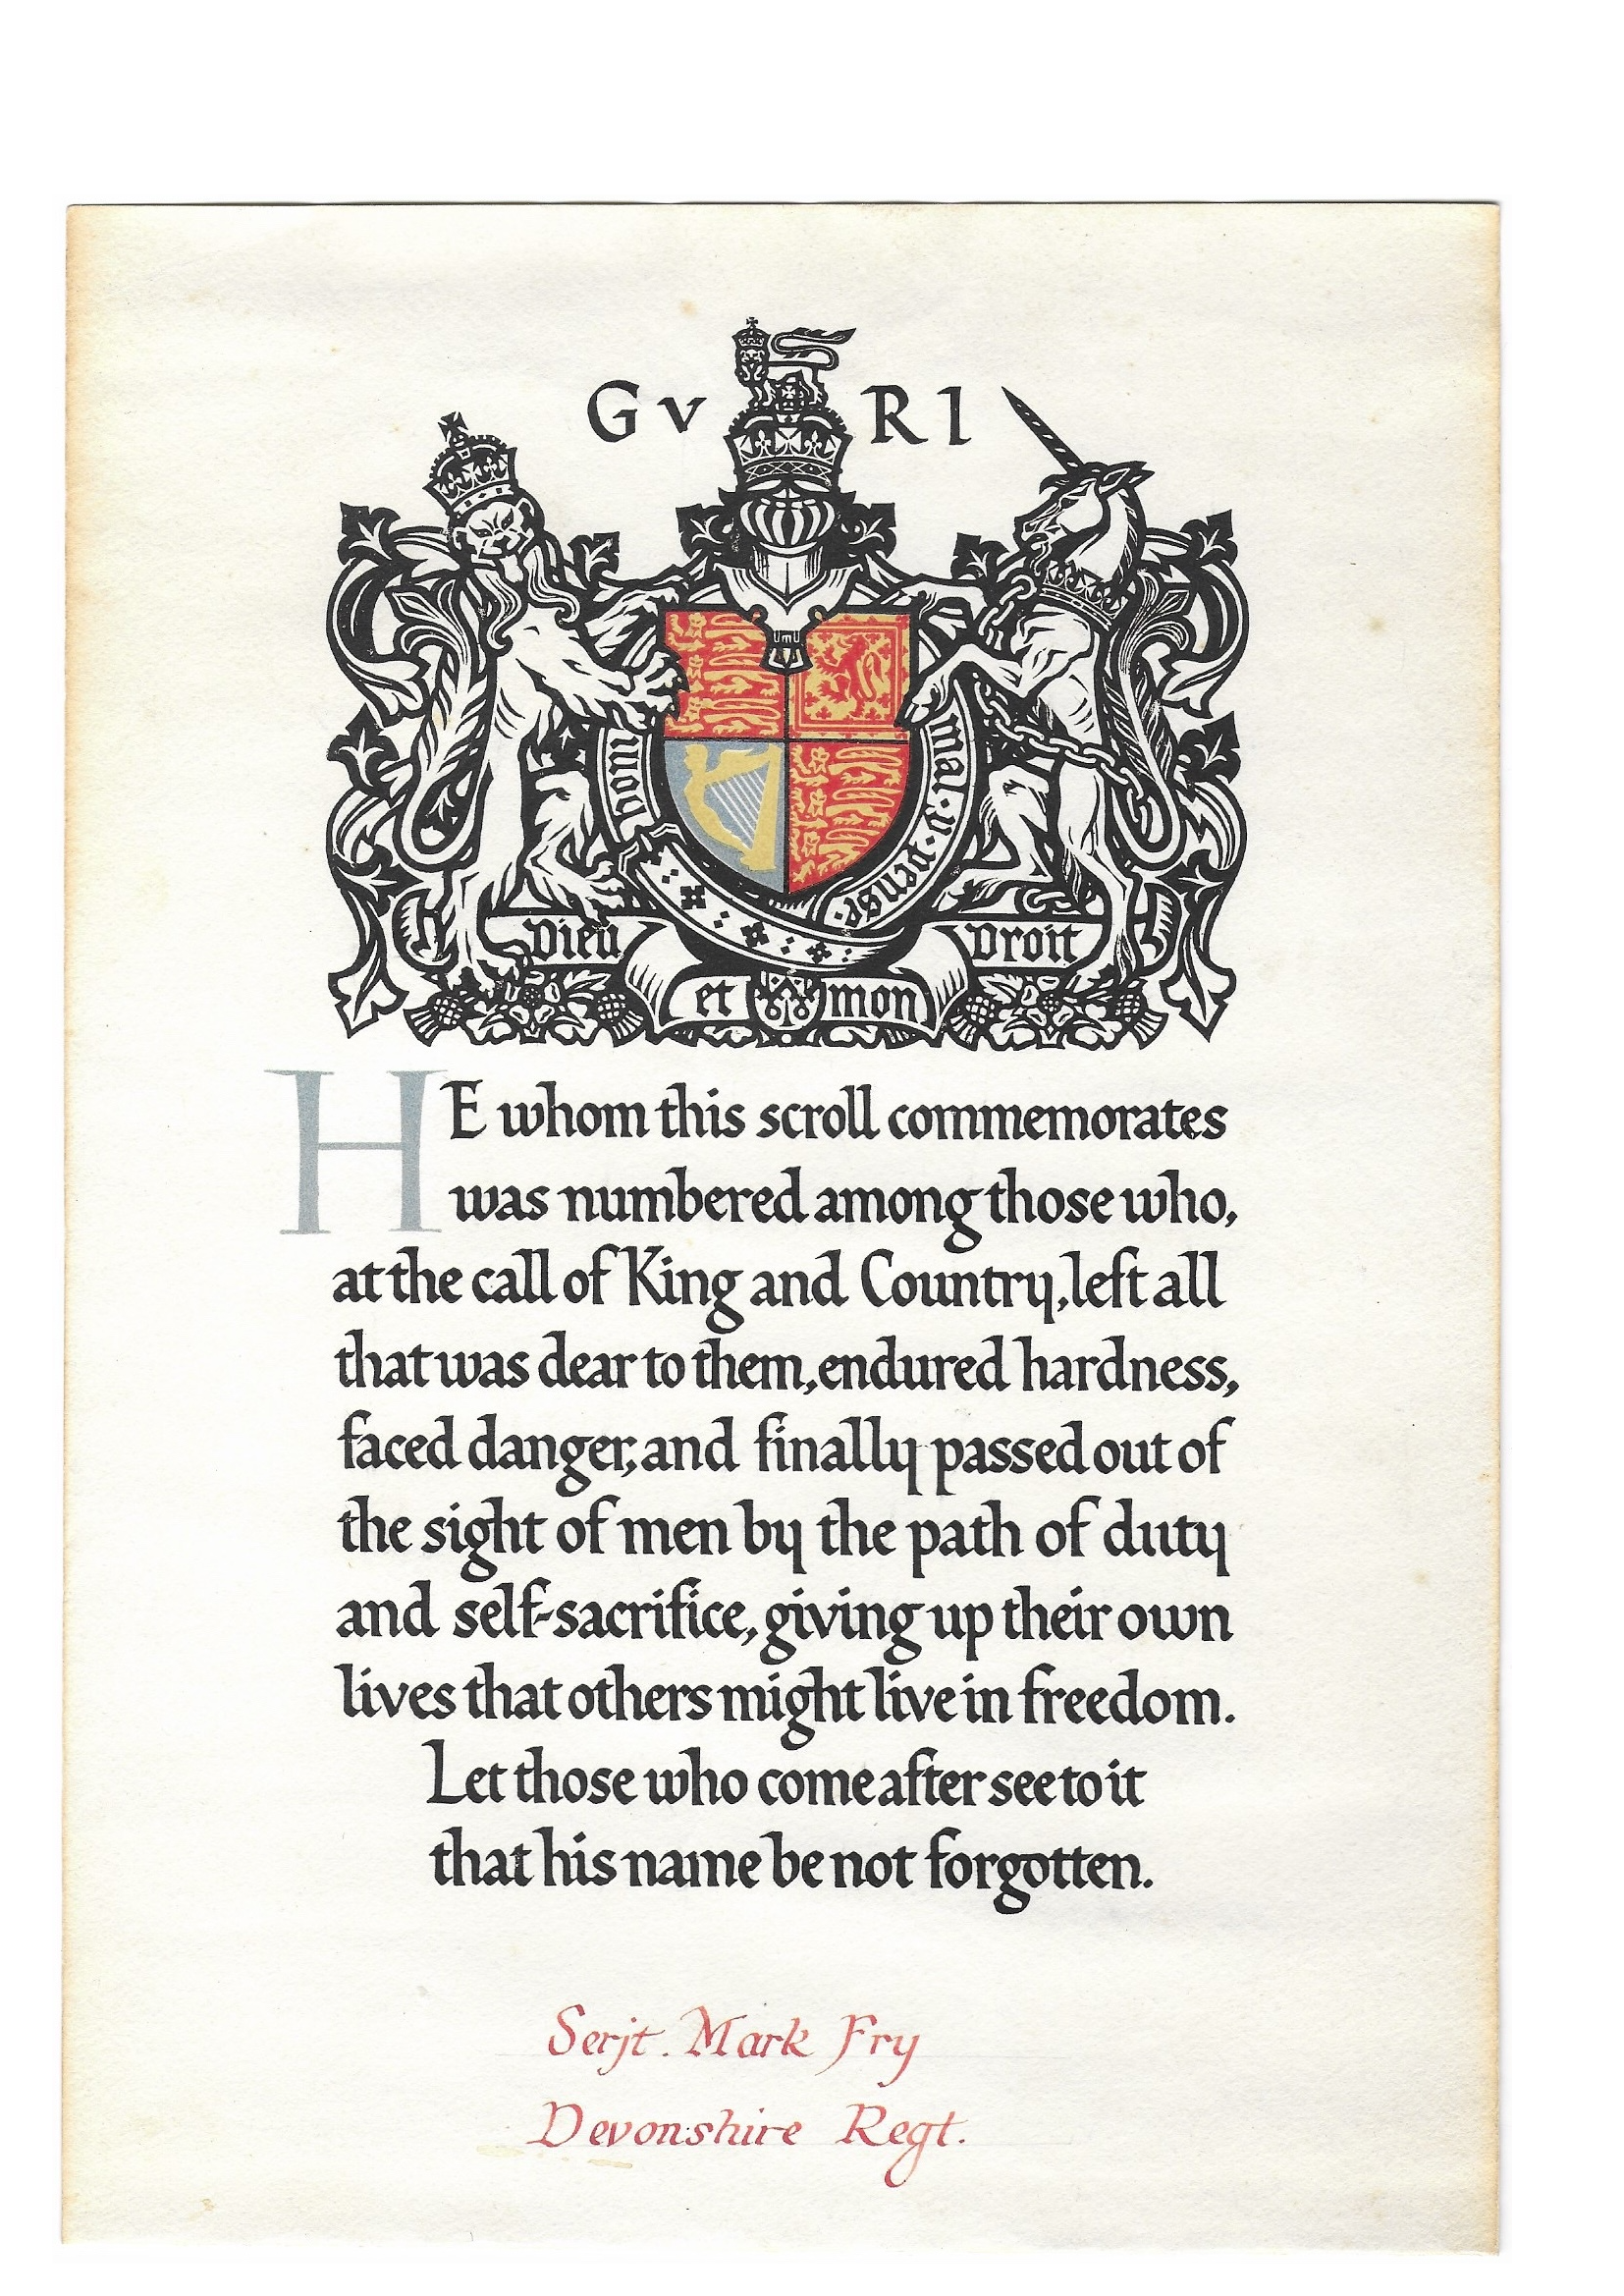 GV RI
honi
mal · y · pense ·
Dieu
et mon
Droit
HE whom this scroll commemorates
was numbered among those who,
at the call of King and Country, left all
that was dear to them, endured hardness,
faced danger, and finally passed out of
the sight of men by the path of duty
and self-sacrifice, giving up their own
lives that others might live in freedom.
Let those who come after see to it
that his name be not forgotten.
Serjt. Mark Fry
Devonshire Regt.